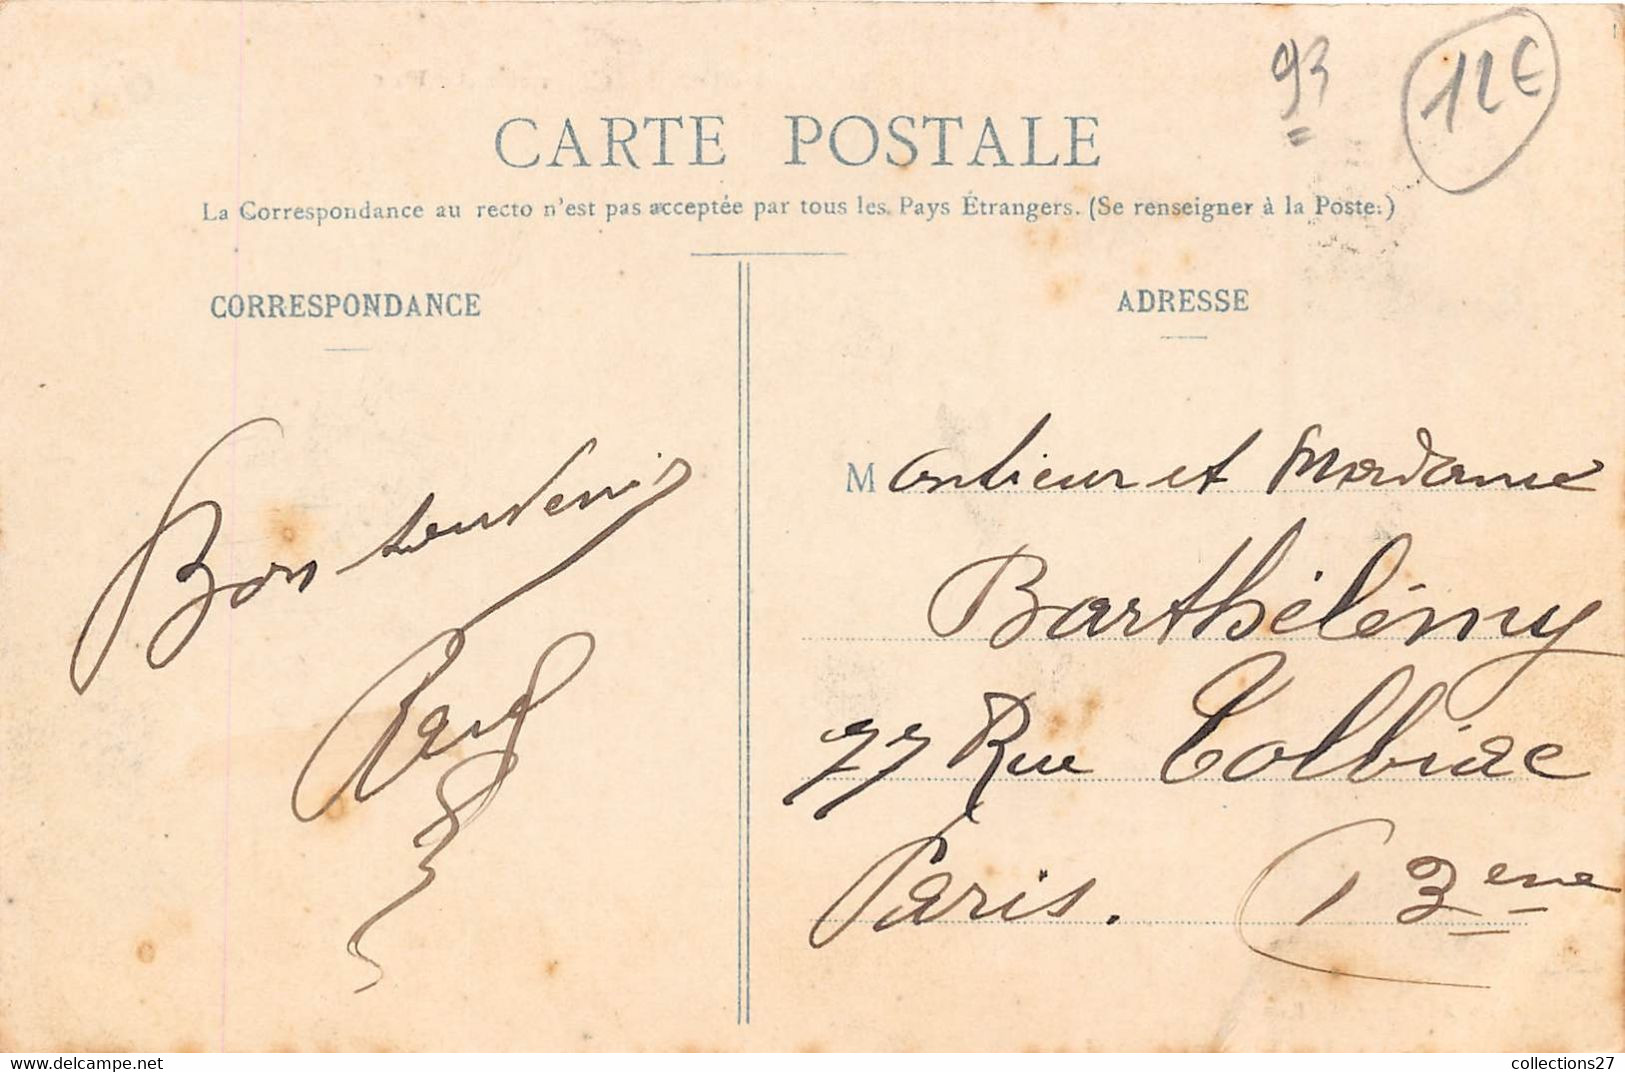 93
12€
CARTE POSTALE
La Correspondance au recto n'est pas acceptée par tous les Pays Étrangers. (Se renseigner à la Poste.)
CORRESPONDANCE
Bon souvenir
ADRESSE
Monsieur et Madame
Barthélémy
77 Rue Tolbiac
Paris. 13eme
collections27